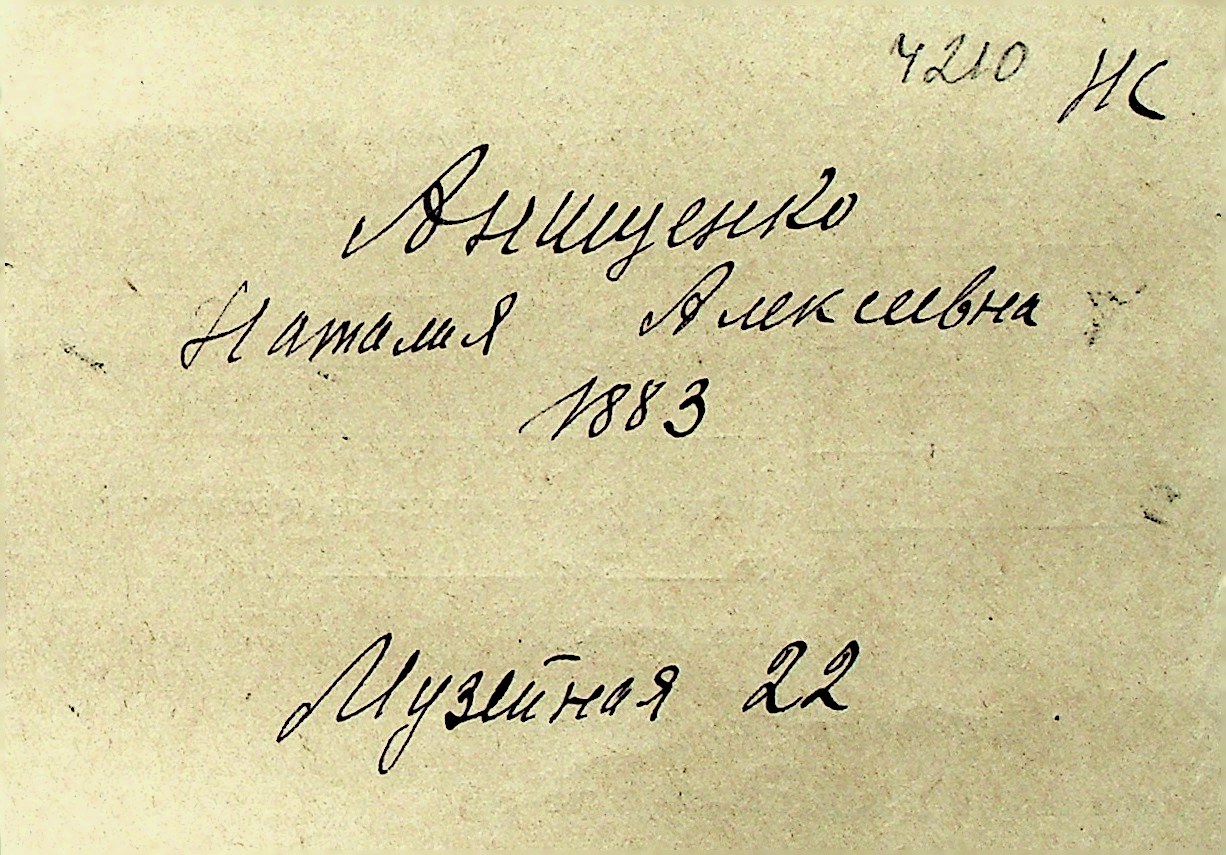 4210 НС
Анищенко
Наталия Алексеевна
1883
Музейная 22